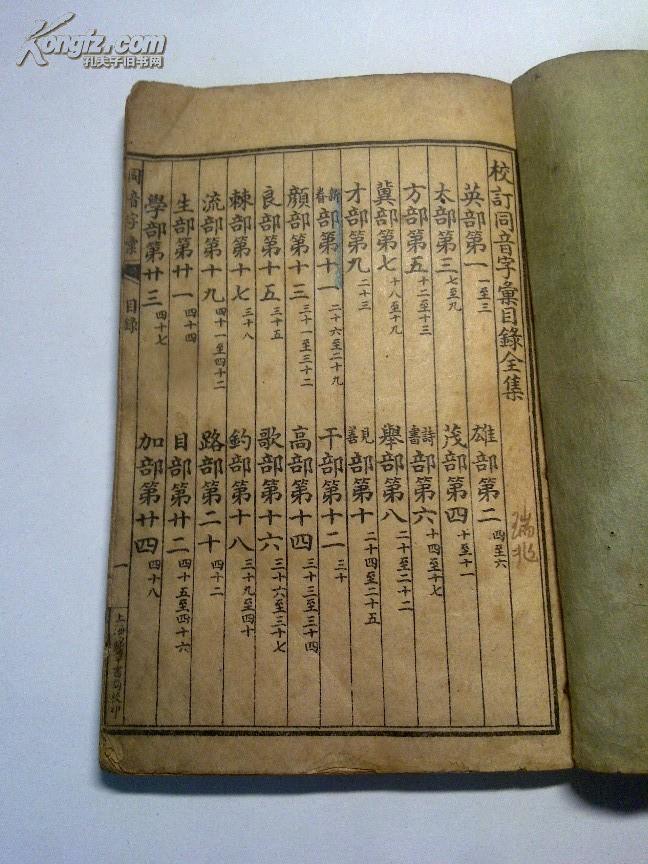 校訂同音字彙目錄全集
英部第一 一至三 雄部第二 四至六
太部第三 七至九 茂部第四 十至十一
方部第五 十二至十三 詩書部第六 十四至十七
冀部第七 十八至十九 舉部第八 二十至二十二
才部第九 二十三 見善部第十 二十四至二十五
新春部第十一 二十六至二十九 干部第十二 三十
顏部第十三 三十一至三十二 高部第十四 三十三至三十四
良部第十五 三十五 歌部第十六 三十六至三十七
棘部第十七 三十八 釣部第十八 三十九至四十
流部第十九 四十一至四十二 路部第二十 四十二
生部第廿一 四十四 目部第廿二 四十五至四十六
學部第廿三 四十七 加部第廿四 四十八
同音字彙 目錄 一
瑞兆
Kongfz.com
孔夫子旧书网